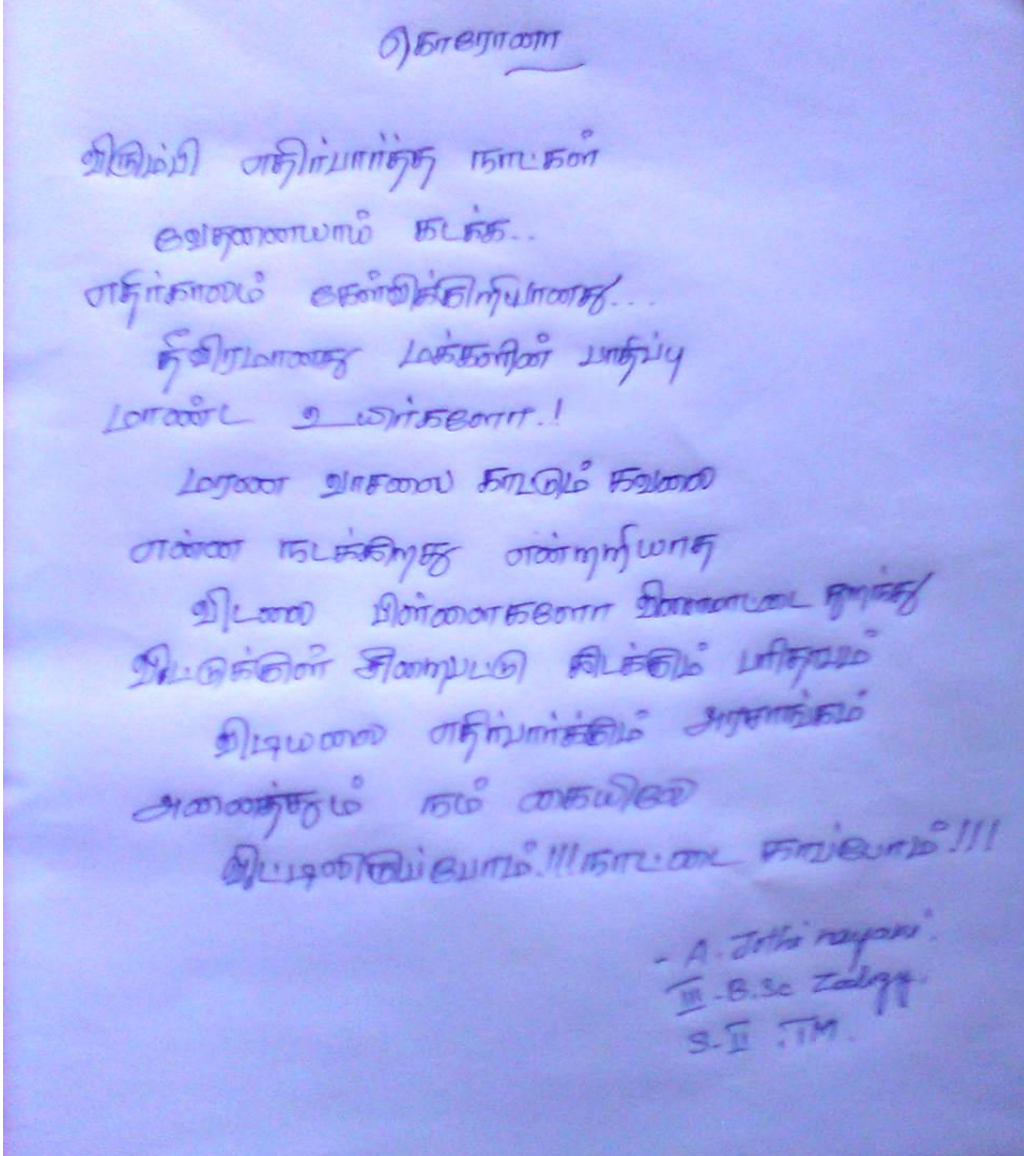 கொரோனா
விரும்பி எதிர்பார்த்த நாட்கள்
வேதனையாய் கடக்க..
எதிர்காலம் கேள்விக்குறியானது...
தீவிரமானது மக்களின் பாதிப்பு
மாண்ட உயிர்களோ.!
மரண வாசலை காட்டும் கவலை
என்ன நடக்கிறது என்றறியாத
விடலை பிள்ளைகளோ விளையாட்டை துறந்து
வீட்டுக்குள் சிறைபட்டு கிடக்கும் பரிதாபம்
விடியலை எதிர்பார்க்கும் அரசாங்கம்
அனைத்தும் நம் கையிலே
வீட்டிலிருப்போம்!!! நாட்டை காப்போம்!!!
- A. Jothi nayaki.
III - B.Sc Zoology.
S-II .TM.